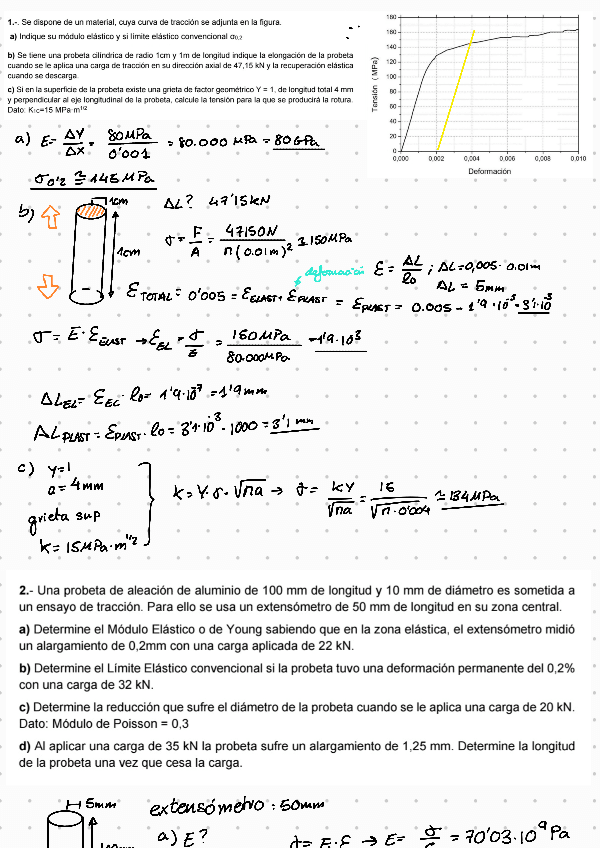 1.-. Se dispone de un material, cuya curva de tracción se adjunta en la figura.
a) Indique su módulo elástico y si límite elástico convencional σ0,2
b) Se tiene una probeta cilíndrica de radio 1cm y 1m de longitud indique la elongación de la probeta
cuando se le aplica una carga de tracción en su dirección axial de 47,15 kN y la recuperación elástica
cuando se descarga.
c) Si en la superficie de la probeta existe una grieta de factor geométrico Y = 1, de longitud total 4 mm
y perpendicular al eje longitudinal de la probeta, calcule la tensión para la que se producirá la rotura.
Dato: K1C=15 MPa·m1/2
180
160
140
120
100
80
60
40
20
0
Tensión (MPa)
0,000 0,002 0,004 0,006 0,008 0,010
Deformación
a) E= ΔY/ΔX = 80MPa/0'001 = 80.000 MPa = 80GPa
σ0'2 ≅ 145MPa
b)
1cm
1cm
ΔL? 47'15kN
σ = F/A = 47150N/π(0.01m)² ≅ 150MPa
deformación
E = ΔL/lo ; ΔL=0,005· 0.01m
ΔL = 5mm
ETOTAL = 0'005 = EELAST + EPLAST = EPLAST = 0.005 - 1'9·10⁻³=3'1·10⁻³
σ= E· EELAST → EEL = σ/E = 150MPa/80.000MPa = 1'9·10³
ΔLEL= EEL· lo= 1'9·10⁻³ =1'9mm
ΔLPLAST = EPLAST· lo= 3'1·10⁻³ · 1000 = 3'1 mm
c) y=1
a= 4mm
grieta sup
K= 15MPa·m1/2
K= Y·σ·√πa → σ= KY/√πa = 15/√π·0'004 ≅ 134MPa
2.- Una probeta de aleación de aluminio de 100 mm de longitud y 10 mm de diámetro es sometida a
un ensayo de tracción. Para ello se usa un extensómetro de 50 mm de longitud en su zona central.
a) Determine el Módulo Elástico o de Young sabiendo que en la zona elástica, el extensómetro midió
un alargamiento de 0,2mm con una carga aplicada de 22 kN.
b) Determine el Límite Elástico convencional si la probeta tuvo una deformación permanente del 0,2%
con una carga de 32 kN.
c) Determine la reducción que sufre el diámetro de la probeta cuando se le aplica una carga de 20 kN.
Dato: Módulo de Poisson = 0,3
d) Al aplicar una carga de 35 kN la probeta sufre un alargamiento de 1,25 mm. Determine la longitud
de la probeta una vez que cesa la carga.
5mm
extensómetro : 50mm
a) E?
σ= E·E → E= σ/ = 70'03·10⁹ Pa